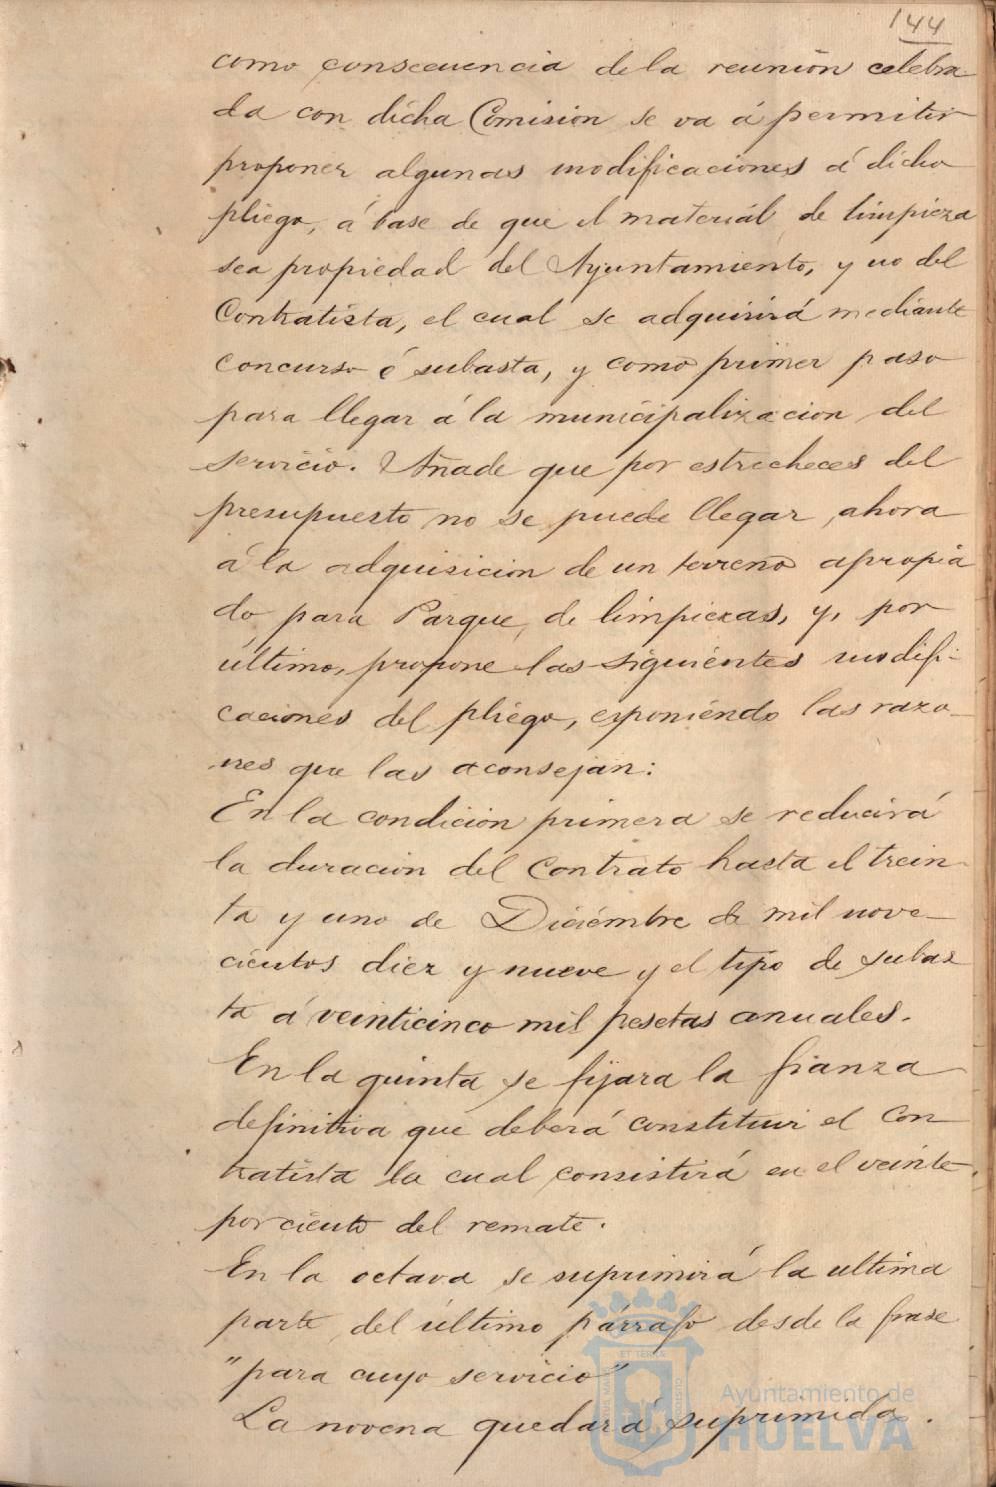 144
como consecuencia de la reunión celebra
da con dicha Comision se va á permitir
proponer algunas modificaciones á dicho
pliego, á base de que el material de limpieza
sea propiedad del Ayuntamiento, y no del
Contratista, el cual se adquirirá mediante
concurso ó subasta, y como primer paso
para llegar á la municipalizacion del
servicio. Añade que por estrecheces del
presupuesto no se puede llegar ahora
á la adquisicion de un terreno apropia
do para Parque de limpiezas, y, por
último, propone las siguientes modifi-
caciones del pliego, exponiendo las razo-
nes que las aconsejan:
En la condición primera se reducirá
la duración del Contrato hasta el trein-
ta y uno de Diciembre de mil nove-
cientos diez y nueve y el tipo de subas
ta á veinticinco mil pesetas anuales.
En la quinta se fijara la fianza
definitiva que deberá constituir el Con
tratista la cual consistirá en el veinte
por ciento del remate.
En la octava se suprimirá la ultima
parte del último párrafo desde la frase
"para cuyo servicio"
La novena quedará suprimida.
Ayuntamiento de
HUELVA